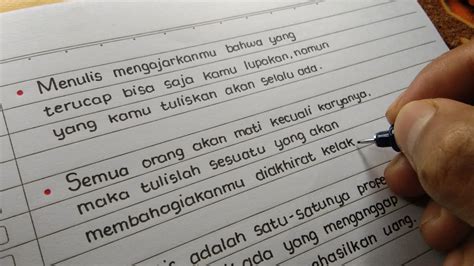 Menulis mengajarkanmu bahwa yang
terucap bisa saja kamu lupakan, namun
yang kamu tuliskan akan selalu ada.
Semua orang akan mati kecuali karyanya,
maka tulislah sesuatu yang akan
membahagiakanmu diakhirat kelak
adalah satu-satunya
ada yang menganggap
uang.